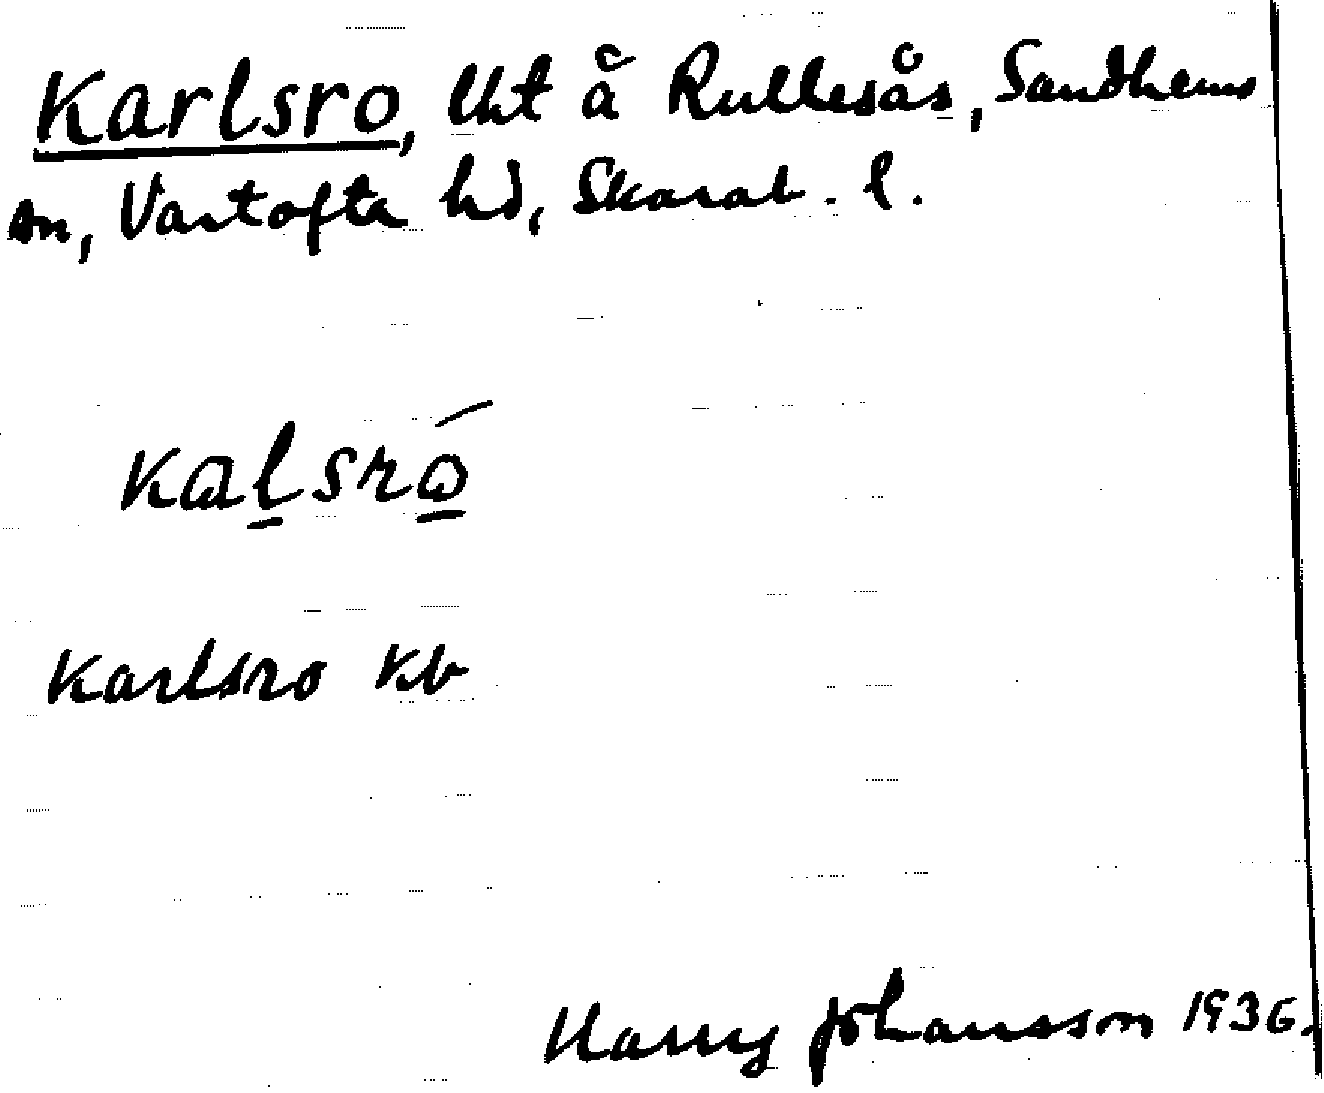 Karlsro, lht å Rullesås, Sandhems
sn, Vartofta hd, Skarab. l.
kalsró
Karlsro kb
Harry Johansson 1936.